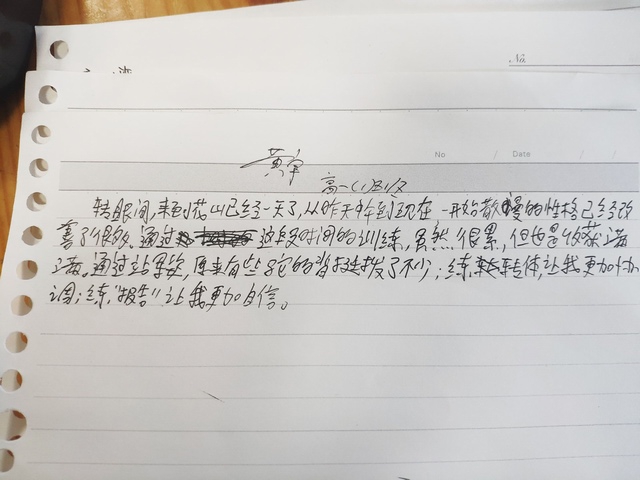 No.
No / Date /
黄宇
高一(1)班
转眼间,来到花山已经一天了,从昨天中午到现在,一开始散漫的性格已经改
善了很多。通过这段时间的训练,虽然很累,但也是收获满
满。通过站军姿,原来有些驼的背挺拔了不少;练转体,让我更加协
调;练“报告”,让我更加自信。